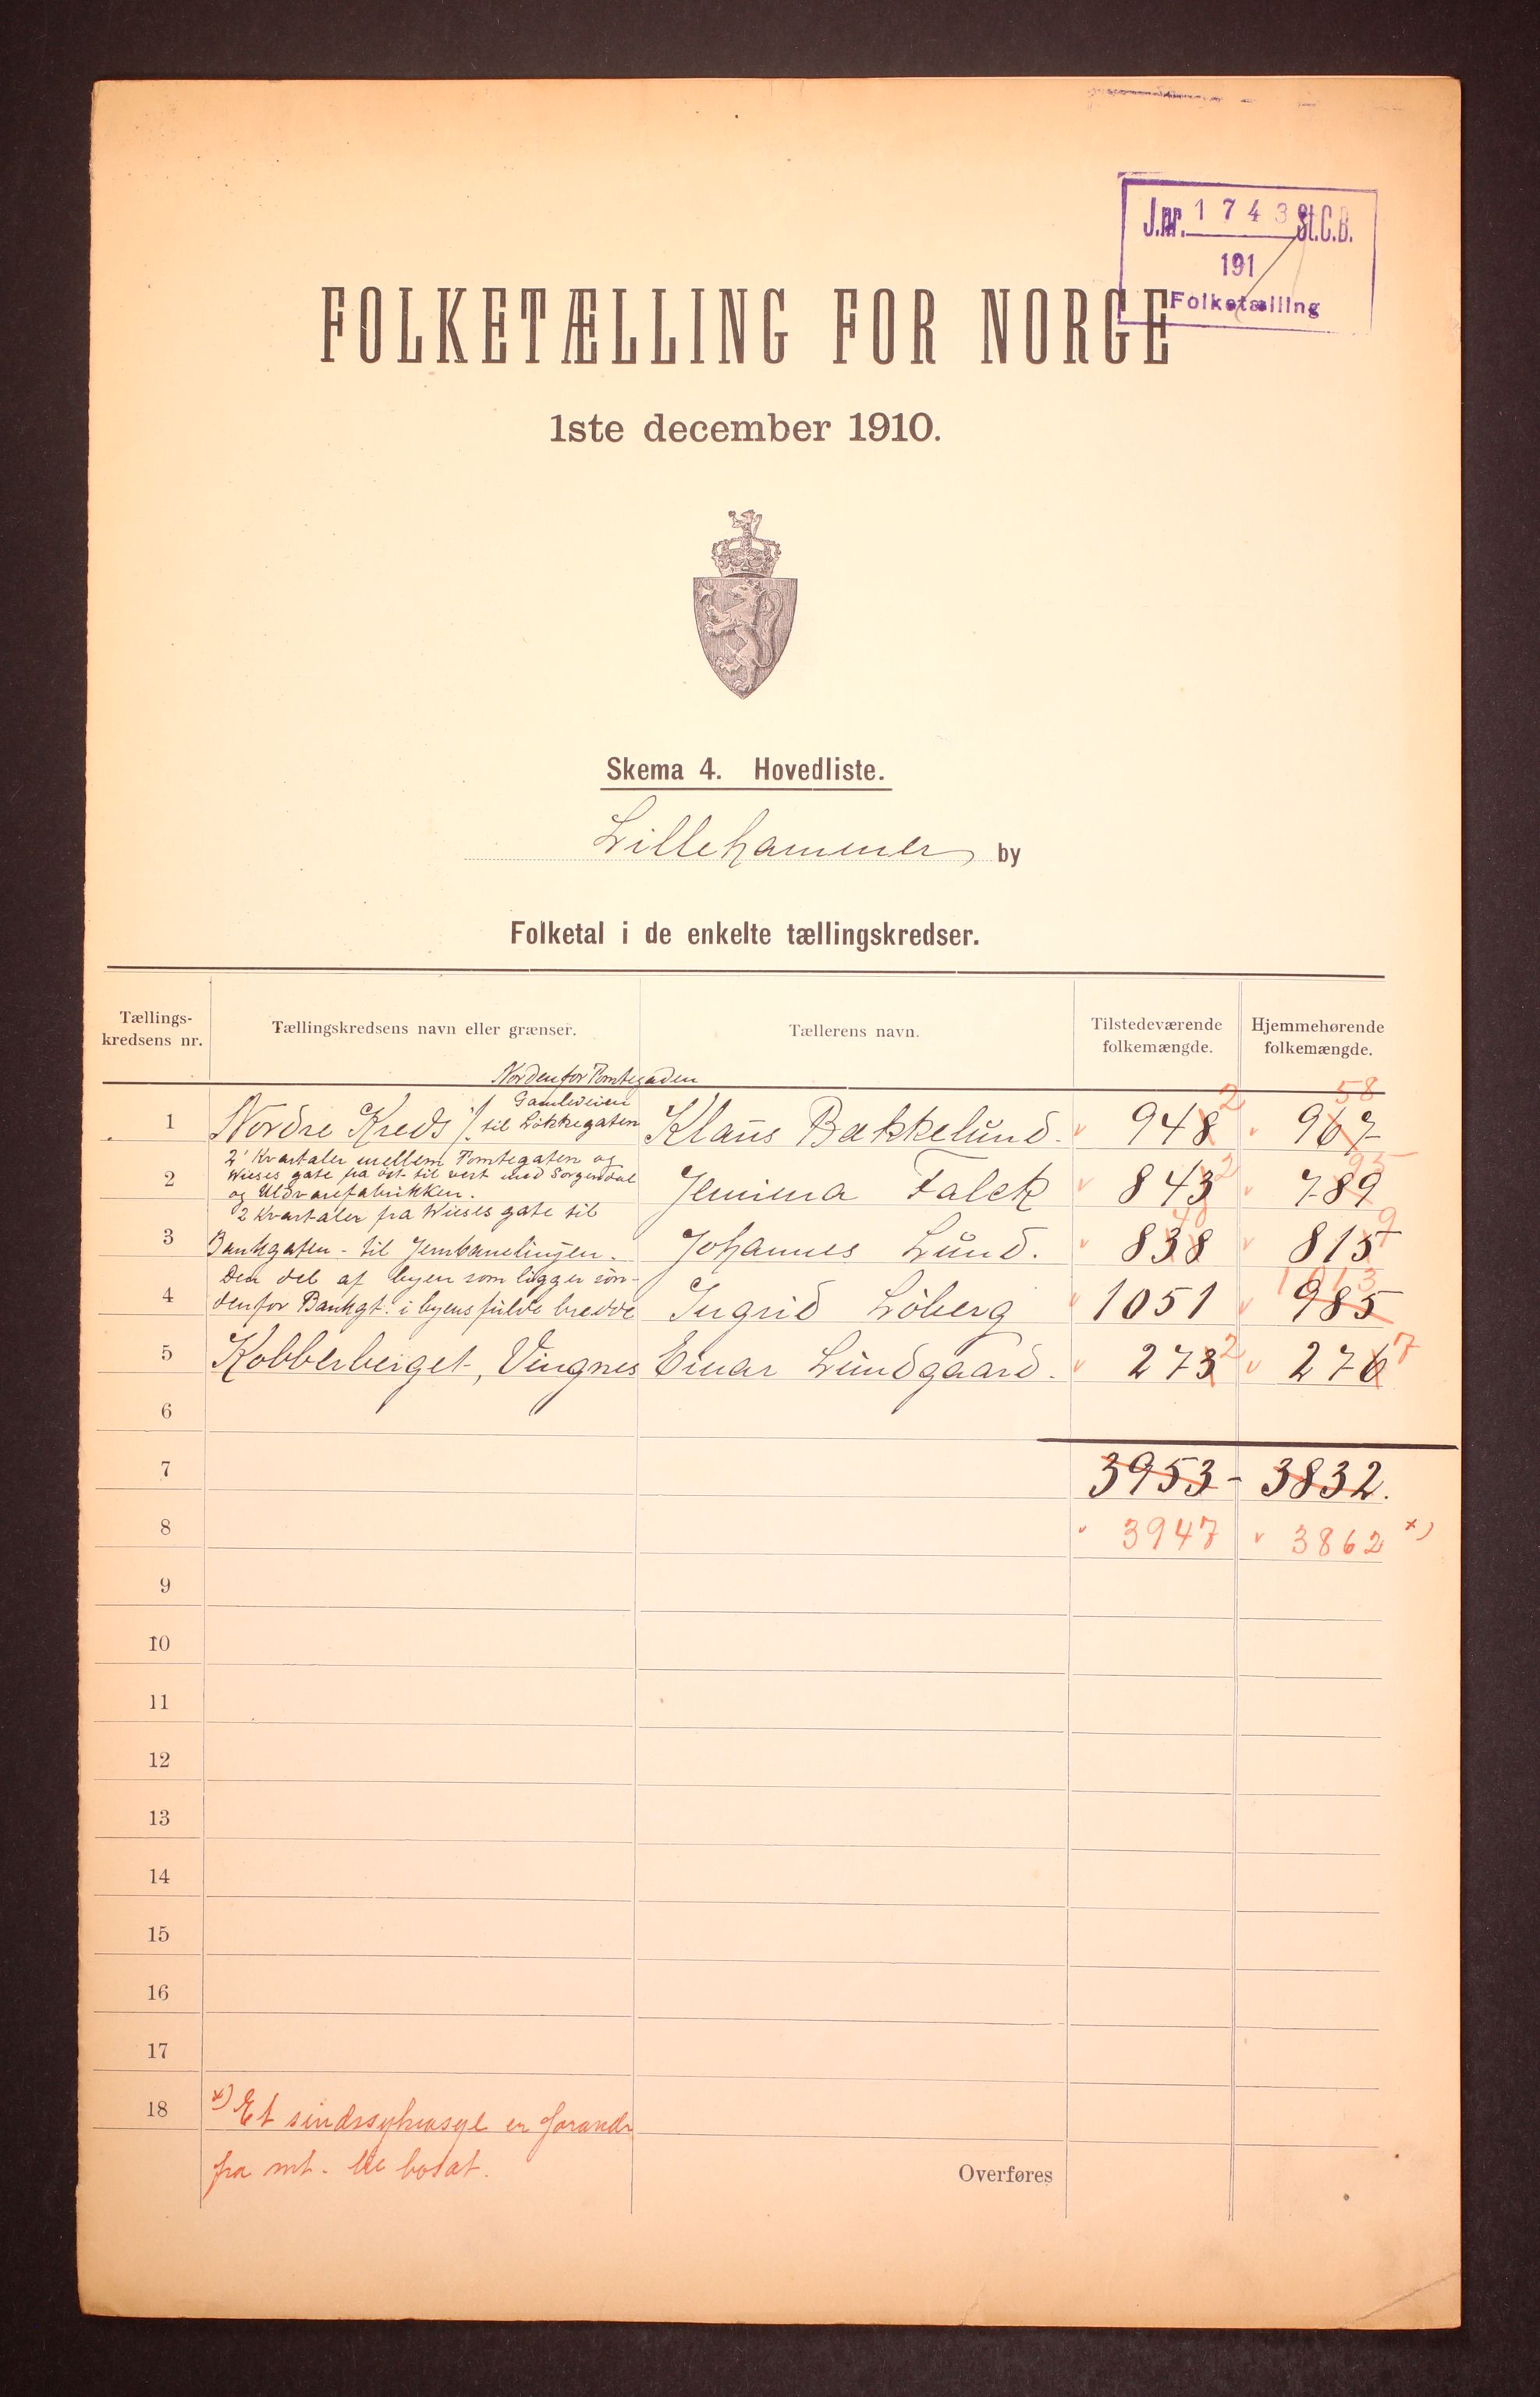 J.nr. 1 7 4 3 St.C.B.
191
Folketælling
FOLKETÆLLING FOR NORGE
1ste december 1910.
Skema 4. Hovedliste.
Lillehammer by
Folketal i de enkelte tællingskredser.
Tællings-kredsens nr. Tællingskredsens navn eller grænser. Tællerens navn. Tilstedeværende folkemængde. Hjemmehørende folkemængde.
Nordenfor Tomtegaden
Gamleveien
1 Nordre Kreds ./. til Løkkegaten Klaus Bakkelund. 948 2 967 58
2 Kvartaler mellem Tomtegaten og
Wieses gate fra øst til vest med Sorgendal
og Uldvarefabrikken.
2 Jemima Falck 843 2 789 95
2 Kvartaler fra Wieses gate til
3 Bankgaten - til Jernbanelinjen. Johannes Lund. 838 40 815 9
Den del af byen som ligger søn-
4 denfor Bankgt. i byens fulde bredde Ingrid Löberg 1051 985 1013
5 Kobberberget, Vingnes Einar Lundgaard. 273 2 276 7
6
7 3953 - 3832.
8 3947 3862 x)
9
10
11
12
13
14
15
16
17
18 x) Et sindssykeasyl er
fra mt. til bosat.
Overføres